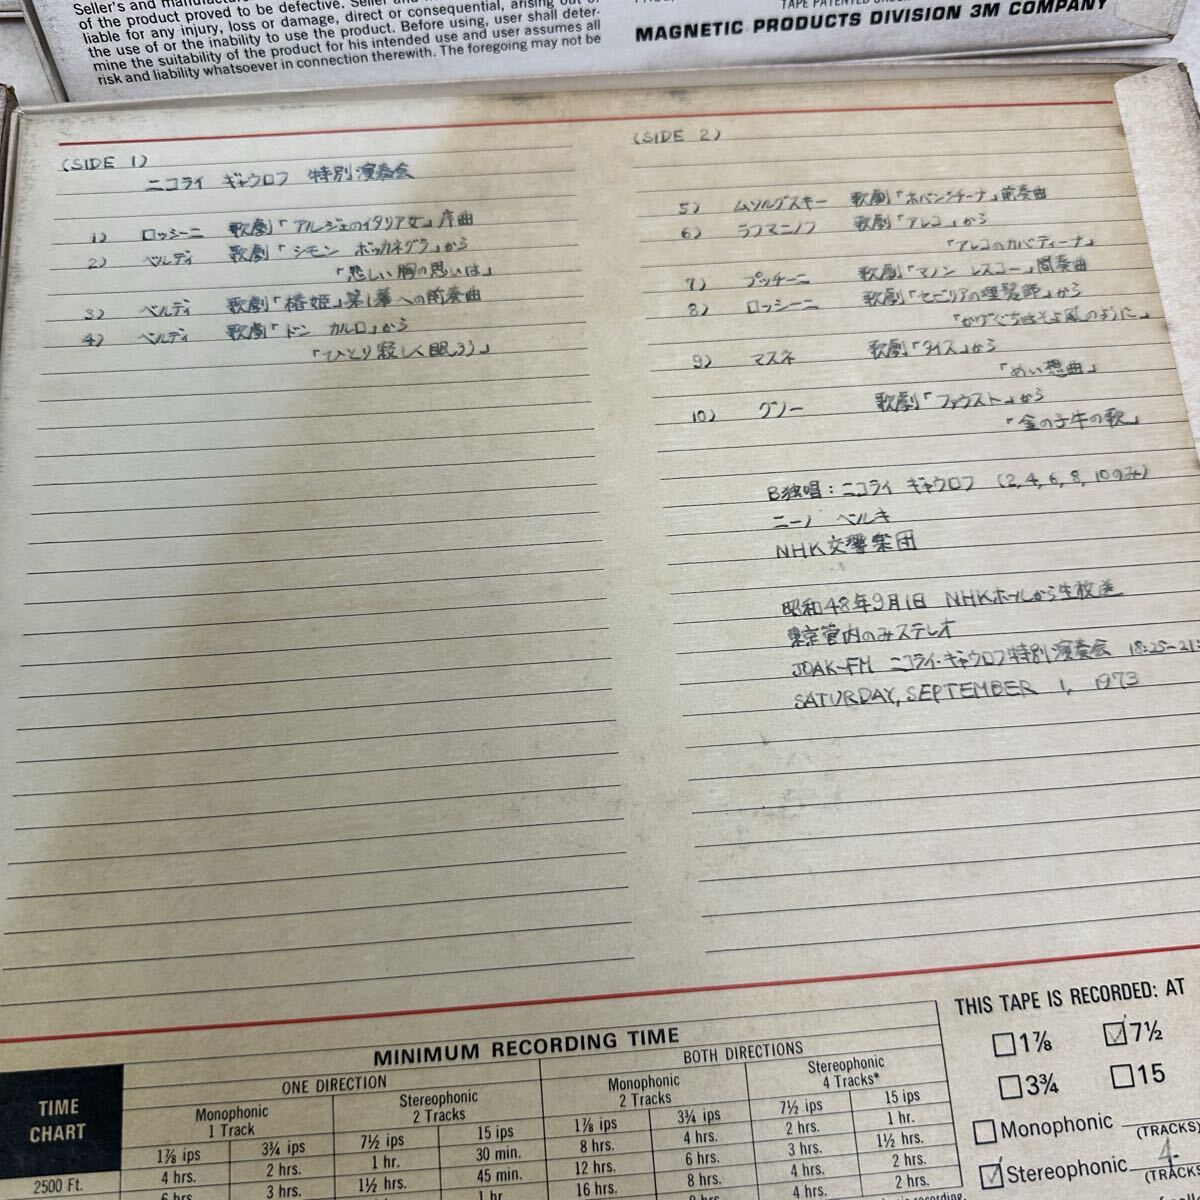 Seller's and manufacturer's
of the product proved to be defective. Seller and
liable for any injury, loss or damage, direct or consequential, arising out of
the use of or the inability to use the product. Before using, user shall deter-
mine the suitability of the product for his intended use and user assumes all
risk and liability whatsoever in connection therewith. The foregoing may not be
TAPE PATENTED
MAGNETIC PRODUCTS DIVISION 3M COMPANY
(SIDE 1)
ニコライ ギャウロフ 特別演奏会
1) ロッシーニ 歌劇「アルジェのイタリア女」序曲
2) ベルディ 歌劇「シモン ボッカネグラ」から
「悲しい胸の思いは」
3) ベルディ 歌劇「椿姫」第1幕への前奏曲
4) ベルディ 歌劇「ドン カルロ」から
「ひとり寂しく眠ろう」
(SIDE 2)
5) ムソルグスキー 歌劇「ホバンシチーナ」前奏曲
6) ラフマニノフ 歌劇「アレコ」から
「アレコのカバティーナ」
7) プッチーニ 歌劇「マノン レスコー」間奏曲
8) ロッシーニ 歌劇「セビリアの理髪師」から
「かげぐちはそよ風のように」
9) マスネ 歌劇「タイス」から
「めい想曲」
10) グノー 歌劇「ファウスト」から
「金の子牛の歌」
B独唱:ニコライ ギャウロフ (2,4,6,8,10のみ)
ニーノ ベルキ
NHK交響楽団
昭和48年9月1日 NHKホールから生放送
東京管内のみステレオ
JOAK-FM ニコライ・ギャウロフ特別演奏会 18:25-21:
SATURDAY, SEPTEMBER 1, 1973
THIS TAPE IS RECORDED: AT
1⅞ 7½
3¾ 15
Monophonic (TRACKS)
Stereophonic 4 (TRACKS
MINIMUM RECORDING TIME
TIME CHART
ONE DIRECTION BOTH DIRECTIONS
Monophonic 1 Track Stereophonic 2 Tracks Monophonic 2 Tracks Stereophonic 4 Tracks*
1⅞ ips 3¾ ips 7½ ips 15 ips 1⅞ ips 3¾ ips 7½ ips 15 ips
4 hrs. 2 hrs. 1 hr. 30 min. 8 hrs. 4 hrs. 2 hrs. 1 hr.
2500 Ft. 6 hrs. 3 hrs. 1½ hrs. 45 min. 12 hrs. 6 hrs. 3 hrs. 1½ hrs.
1 hr. 16 hrs. 8 hrs. 4 hrs. 2 hrs.
4 hrs. 2 hrs.
recording.